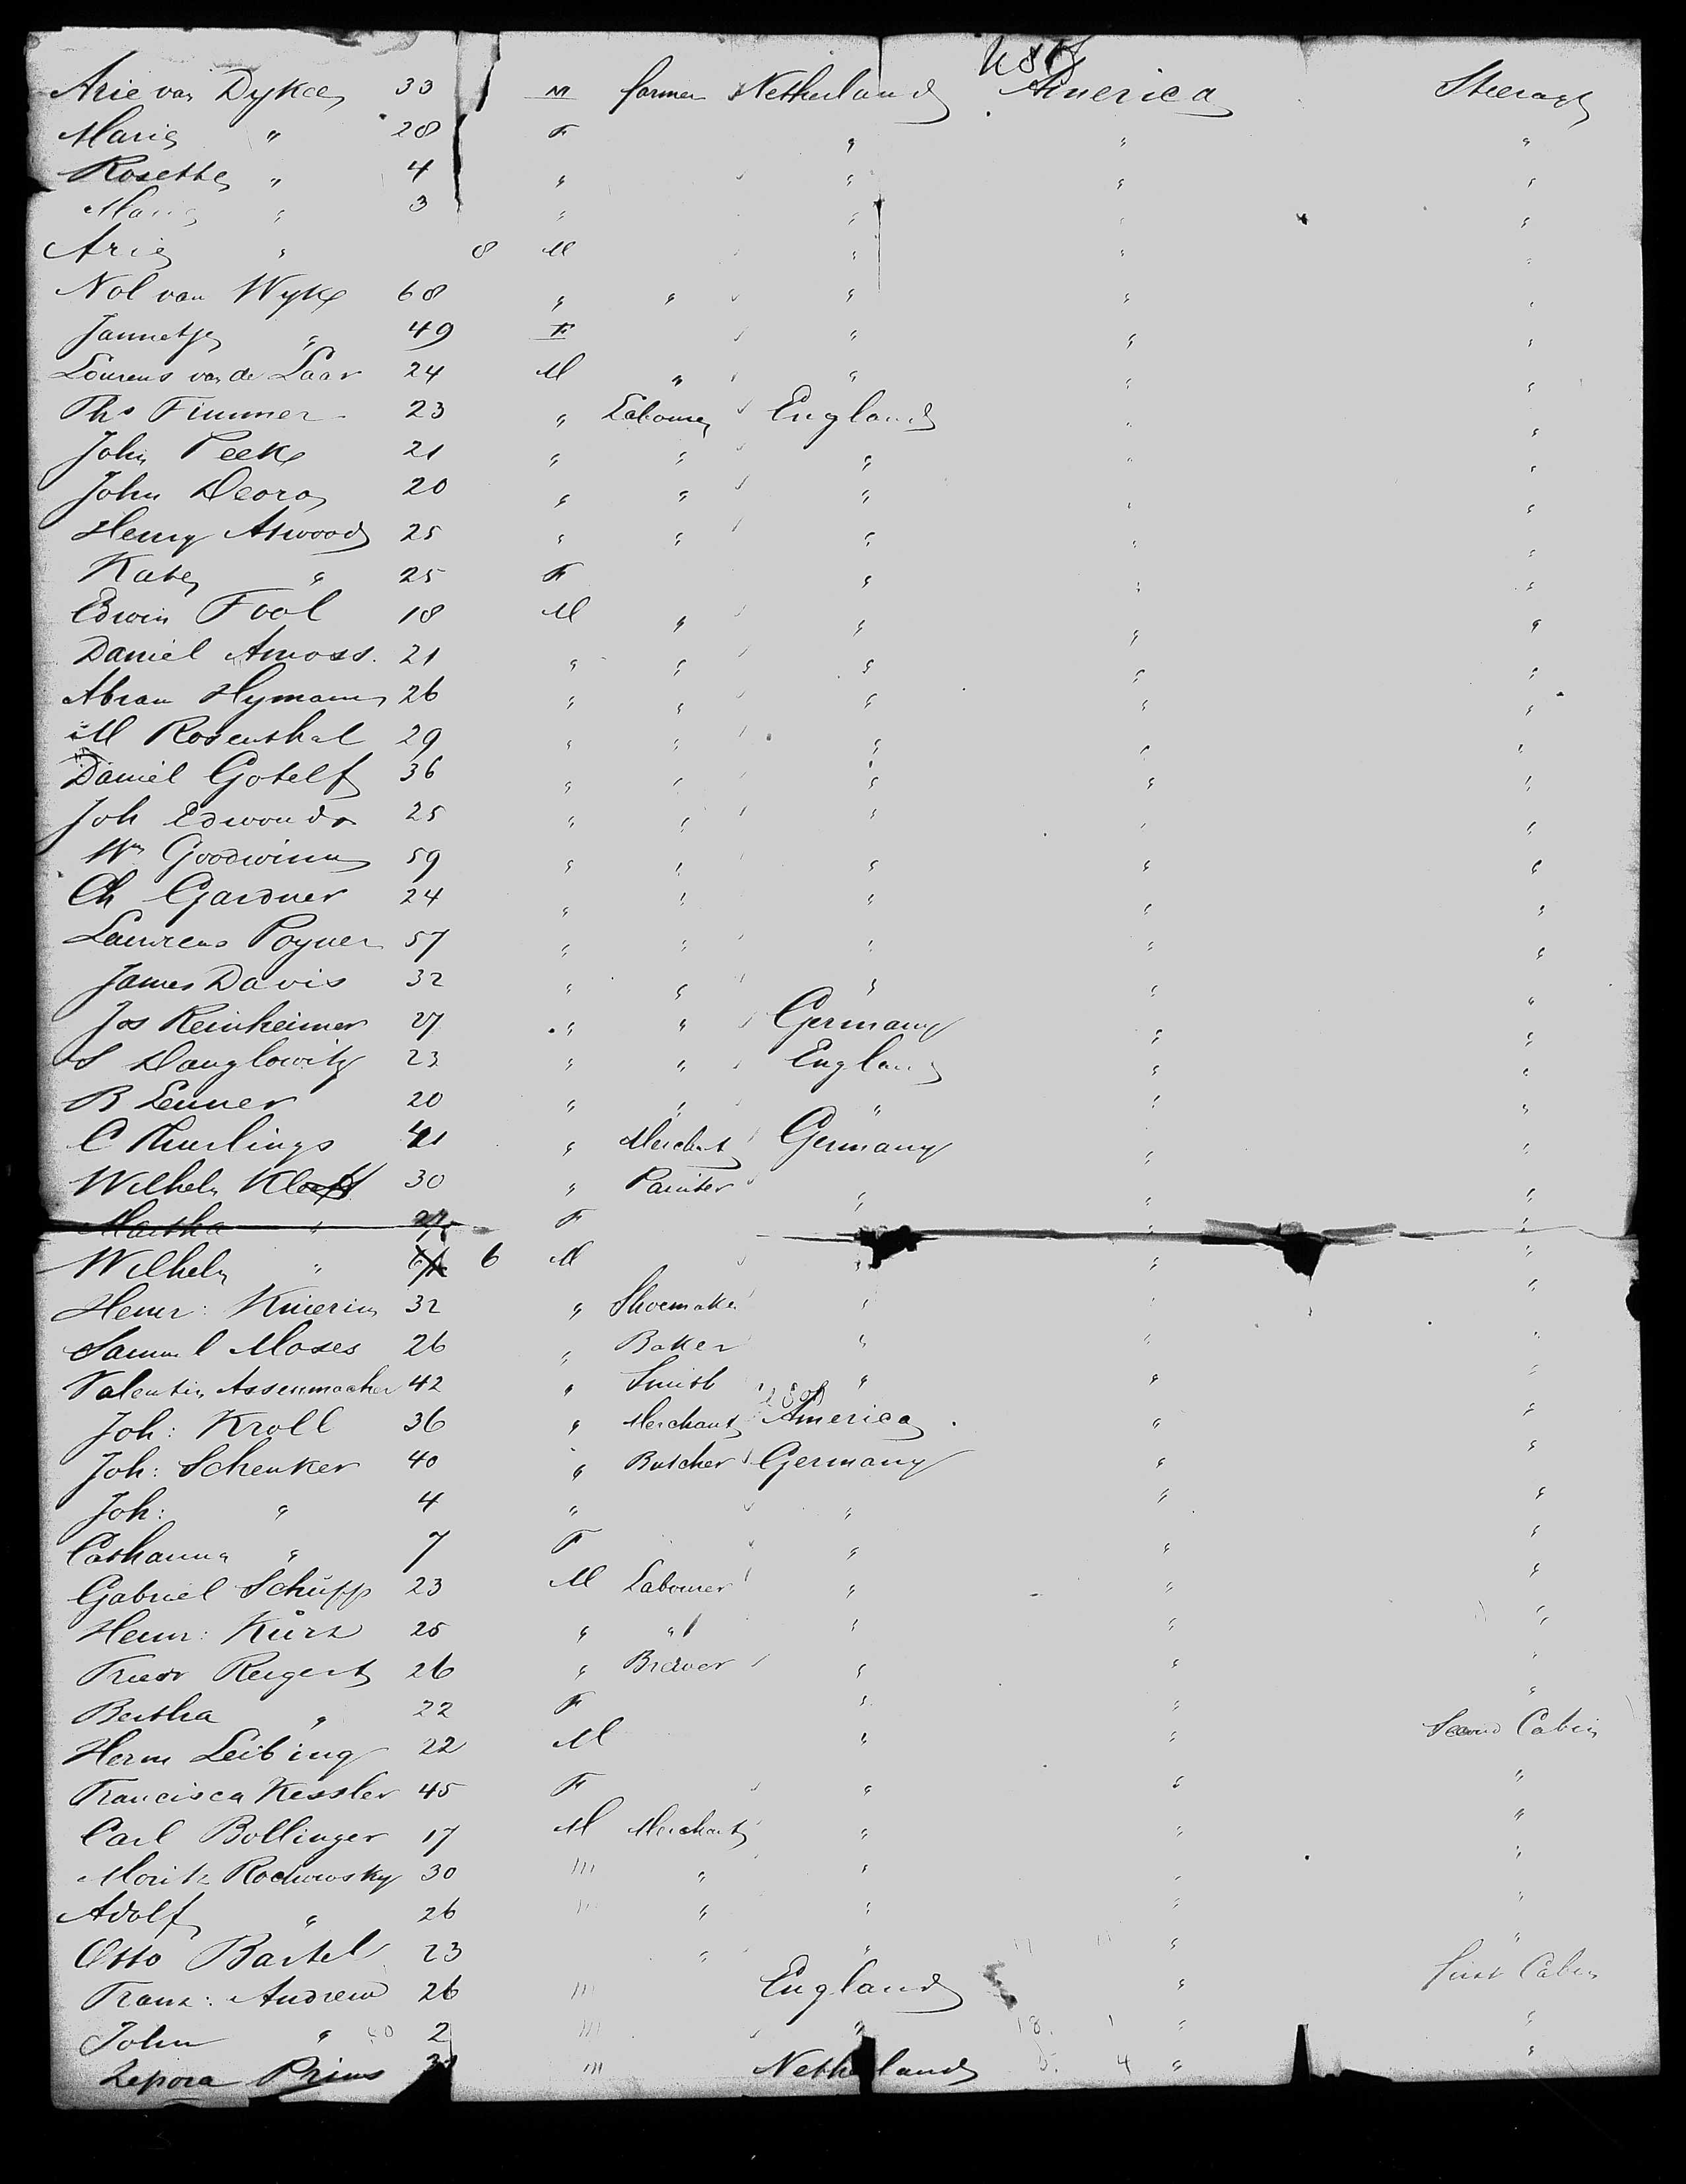 USA
Arie van Dyke 33 M farmer Netherland America Steerage
Maria " 28 F " " "
Rosette " 4 " " " "
Maria " 3 " " " "
Arie " 8 M " " "
Nol van Wyk 68 " " " " "
Jannetje " 49 F " " "
Lourens van de Laar 24 M " " " "
Ths Fimmer 23 " Labourer England " "
John Peek 21 " " " " "
John Deora 20 " " " " "
Henry Atwood 25 " " " " "
Kate " 25 F " " "
Edwin Fool 18 M " " " "
Daniel Amoss. 21 " " " " "
Abram Hymann 26 " " " " "
M Rosenthal 29 " " " " "
Daniel Gotelf 36 " " " " "
Joh Edwards 25 " " " " "
Wm Goodwinn 59 " " " " "
Ch Gardner 24 " " " " "
Laurens Poyner 57 " " " " "
James Davis 32 " " " " "
Jos Reinheimer 27 " " Germany " "
S Danglowitz 23 " " England " "
B Lenner 20 " " " " "
C Thurlings 41 " Merchant Germany " "
Wilhelm 30 " Painter " " "
Martha " F " "
Wilhelm " 6 M " " "
Henr: Knierim 32 " Shoemaker " " "
Samuel Moses 26 " Baker " " "
Valentin Assenmacher 42 " Smith " " "
USA
Joh: Kroll 36 " Merchant America " "
Joh: Schenker 40 " Butcher Germany " "
Joh: " 4 " " " "
Cathanna " 7 F " " "
Gabriel Schupp 23 M Labourer " " "
Henr: Kurz 25 " " " " "
Friedr Reigert 26 " Brewer " " "
Bertha " 22 F " " "
Herm Leibing 22 M " " Second Cabin
Francisca Kessler 45 F " " "
Carl Bollinger 17 M Merchant " " "
Moritz Rochowsky 30 " " " " "
Adolf " 26 " " " " "
Otto Bartel 23 " " " "
Franz: Andrew 26 " England " First Cabin
John " 2 " " " "
Zepora Prins " Netherland " "